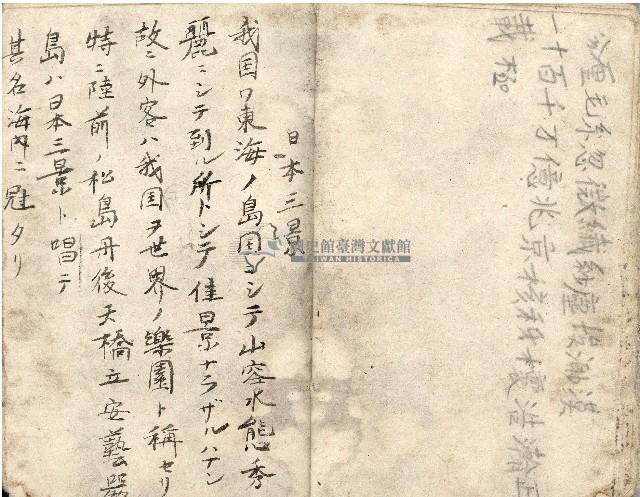 分厘毛糸忽微繊紗塵埃渺漠
一十百千万億兆京垓秭穣正
載極
日本三景
我国ワ東海ノ島国ニシテ山容水態秀
麗ニシテ到ル所トシテ佳景ナラザルハナシ
故ニ外客ハ我国ヲ世界ノ樂園ト稱セリ
特ニ陸前ノ松島丹後天橋立安藝嚴
島ハ日本三景ト唱テ
其名海内ニ冠タリ
國史館臺灣文獻館
TAIWAN HISTORICA